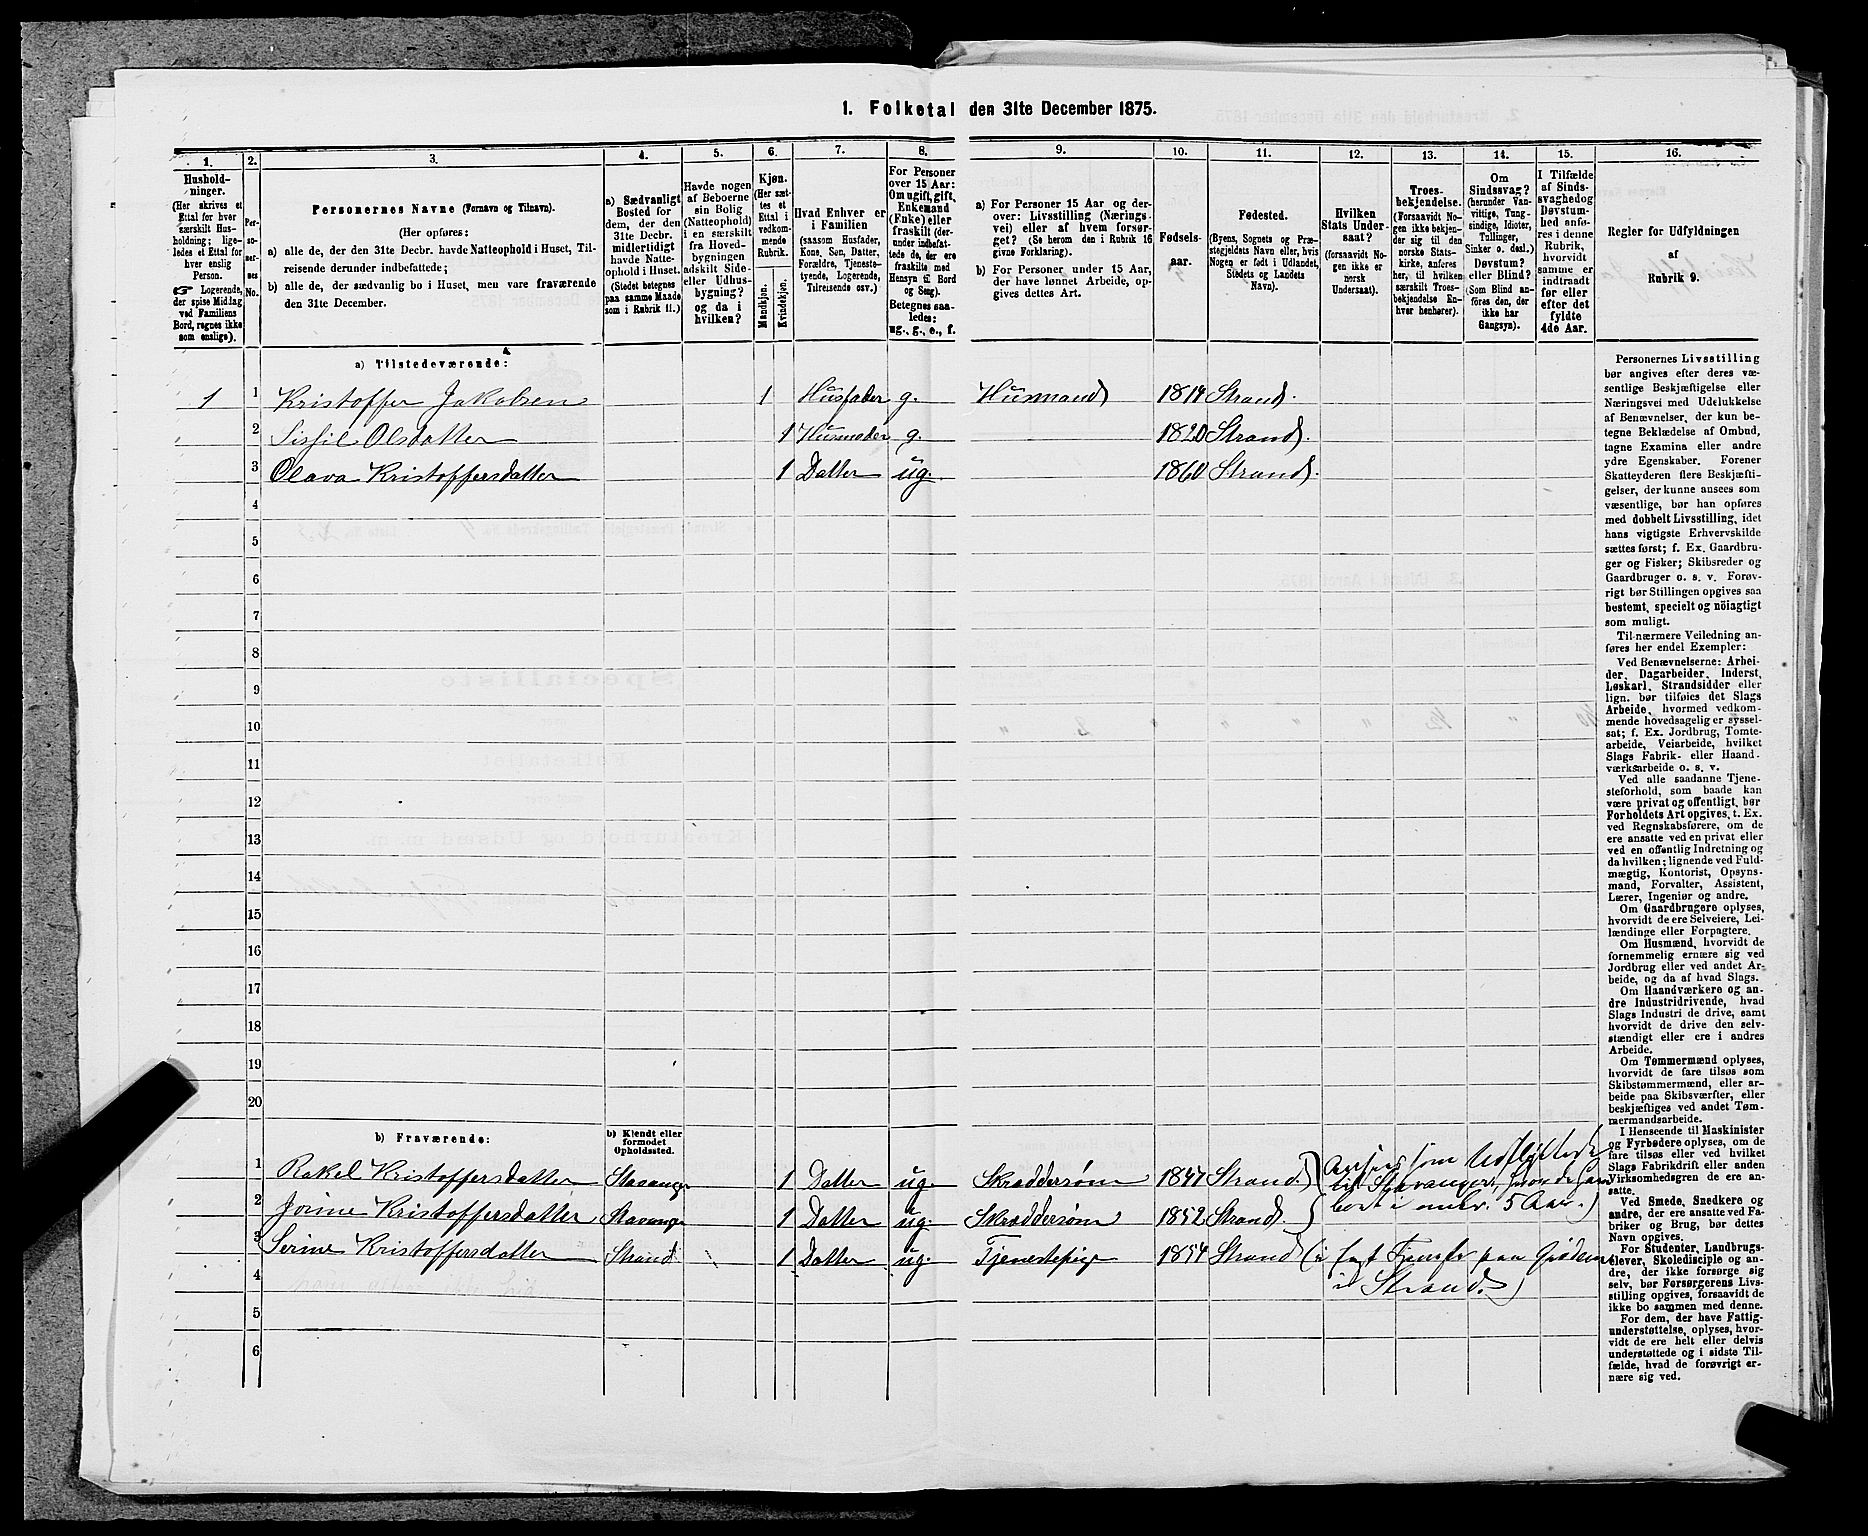 1. Folketal den 31te December 1875.
1. 2. 3. 4. 5. 6. 7. 8. 9. 10. 11. 12. 13. 14. 15. 16.
Hushold-
ninger.
(Her skrives et
Ettal for hver
særskilt Hus-
holdning; lige-
ledes et Ettal for
hver enslig
Person.
☞ Logerende,
der spise Middag
ved Familiens
Bord, regnes ikke
som enslige).
Per-
so-
ner-
nes
No.
Personernes Navne (Fornavn og Tilnavn).
(Her opføres:
a) alle de, der den 31te Decbr. havde Natteophold i Huset, Til-
reisende derunder indbefattede;
b) alle de, der sædvanlig bo i Huset, men vare fraværende
den 31te December.
a) Sædvanligt
Bosted for
dem, der den
31te Decbr.
midlertidigt
havde Natte-
ophold i Huset.
(Stedet betegnes
paa samme Maade
som i Rubrik 11.)
Havde nogen
af Beboerne
sin Bolig
(Natteophold)
i en særskilt
fra Hoved-
bygningen
adskilt Side-
eller Udhus-
bygning?
og da i
hvilken?
Kjøn.
(Her sæt-
tes et
Ettal i
vedkom-
mende
Rubrik.
Mandkjøn.
Kvindekjøn.
Hvad Enhver er
i Familien
(saasom Husfader,
Kone, Søn, Datter,
Forældre, Tjeneste-
tyende, Logerende,
Tilreisende osv.)
For Personer
over 15 Aar:
Om ugift, gift,
Enkemand
(Enke) eller
fraskilt (der-
under indbefat-
tede de, der ere
fraskilte med
Hensyn til Bord
og Seng).
Betegnes saa-
ledes:
ug., g., e., f.
a) For Personer 15 Aar og der-
over: Livsstilling (Nærings-
vei) eller af hvem forsør-
get? (Se herom den i Rubrik 16
givne Forklaring).
b) For Personer under 15 Aar,
der have lønnet Arbeide, op-
gives dettes Art.
Fødsels-
aar.
Fødested.
(Byens, Sognets og Præ-
stegjeldets Navn eller, hvis
Nogen er født i Udlandet,
Stedets og Landets
Navn).
Hvilken
Stats Under-
saat?
(forsaavidt No-
gen ikke er
norsk
Undersaat).
Troes-
bekjendelse.
(Forsaavidt No-
gen ikke bekjen-
der sig til den
norske Stats-
kirke, anføres
her, til hvilken
særskilt Troes-
bekjendelse En-
hver henhører).
Om
Sindssvag?
(herunder Van-
vittige, Tung-
sindige, Idioter,
Tullinger,
Sinker o. desl.).
Døvstum?
eller Blind?
(Som Blind an-
føres den, der
ikke har
Gangsyn).
I Tilfælde
af Sinds-
svaghed og
Døvstum-
hed anfø-
res i denne
Rubrik,
hvorvidt
samme er
indtraadt
før eller
efter det
fyldte
4de Aar.
Regler for Udfyldningen
af
Rubrik 9.
a) Tilstedeværende:
1 1 Kristoffer Jakobsen 1 Husfader g. Husmand 1814 Strand.
2 Sissil Olsdatter 1 Husmoder g. 1820 Strand.
3 Olava Kristoffersdatter 1 Datter ug. 1860 Strand.
4
5
6
7
8
9
10
11
12
13
14
15
16
17
18
19
20
b) Fraværende:
b) Kjendt eller
formodet
Opholdssted.
1 Rakel Kristoffersdatter Stavanger 1 Datter ug. Skræddersøm 1847 Strand.) (Anføres som Udflyttede
til Stavanger, hvor de have
2 Jorine Kristoffersdatter Stavanger 1 Datter ug. Skræddersøm 1852 Strand.
boet i 5 Aar.)
3 Serine Kristoffersdatter Strand. 1 Datter ug. Tjenestepige 1854 Strand (i fast Tjeneste paa
i Strand.)
4
5
6
Personernes Livsstilling
bør angives efter deres væ-
sentlige Beskjæftigelse eller
Næringsvei med Udelukkelse
af Benævnelser, der kun be-
tegne Beklædelse af Ombud,
tagne Examina eller andre
ydre Egenskaber. Forener
Skatteyderen flere Beskjæfti-
gelser, der kunne ansees som
væsentlige, bør han opføres
med dobbelt Livsstilling, idet
hans vigtigste Erhvervskilde
sættes først; f. Ex. Gaardbru-
ger og Fisker; Skibsreder og
Gaardbruger o. s. v. Forøv-
rigt bør Stillingen opgives saa
bestemt, specielt og nöiagtigt
som muligt.
Til nærmere Veiledning an-
føres her endel Exempler:
Ved Benævnelserne: Arbei-
der, Dagarbeider, Inderst,
Løskarl, Strandsidder eller
lign. bør tilføies det Slags
Arbeide, hvormed vedkom-
mende hovedsagelig er syssel-
sat; f. Ex. Jordbrug, Tomte-
arbeide, Veiarbeide, hvilket
Slags Fabrik- eller Haand-
værksarbeide o. s. v.
Ved alle saadanne Tjene-
steforhold, som baade kan
være privat og offentligt, bør
Forholdets Art opgives, t. Ex.
ved Regnskabsførere, om de
ere ansatte ved en privat eller
ved en offentlig Indretning og
da hvilken; lignende ved Fuld-
mægtig, Kontorist, Opsyns-
mand, Forvalter, Assistent,
Lærer, Ingeniør og andre.
Om Gaardbrugere oplyses,
hvorvidt de ere Selveiere, Lei-
lændinge eller Forpagtere.
Om Husmænd, hvorvidt de
fornemmelig ernære sig ved
Jordbrug eller ved andet Ar-
beide, og da af hvad Slags.
Om Haandværkere og an-
dre Industridrivende, hvad
Slags Industri de drive, samt
hvorvidt de drive den selv-
stændigt eller ere i andres
Arbeide.
Om Tømmermænd oplyses,
hvorvidt de fare tilsøs som
Skibstømmermænd, eller ar-
beide paa Skibsværfter, eller
beskjæftiges ved andet Tøm-
mermandsarbeide.
I Henseende til Maskinister
og Fyrbødere oplyses, om de
fare tilsøs eller ved hvilket
Slags Fabrikdrift eller anden
Virksomhedsgren de ere an-
satte.
Ved Smede, Snedkere og
andre, der ere ansatte ved Fa-
briker og Brug, bør dettes
Navn opgives.
For Studenter, Landbrugs-
elever, Skoledisciple og an-
dre, der ikke forsørge sig
selv, bør Forsørgerens Livs-
stilling opgives, forsaavidt de
ikke bo sammen med denne.
For dem, der have Fattig-
understøttelse, oplyses, hvor-
vidt de ere helt eller delvis
understøttede og i sidste Til-
fælde, hvad de forøvrigt er-
nære sig ved.